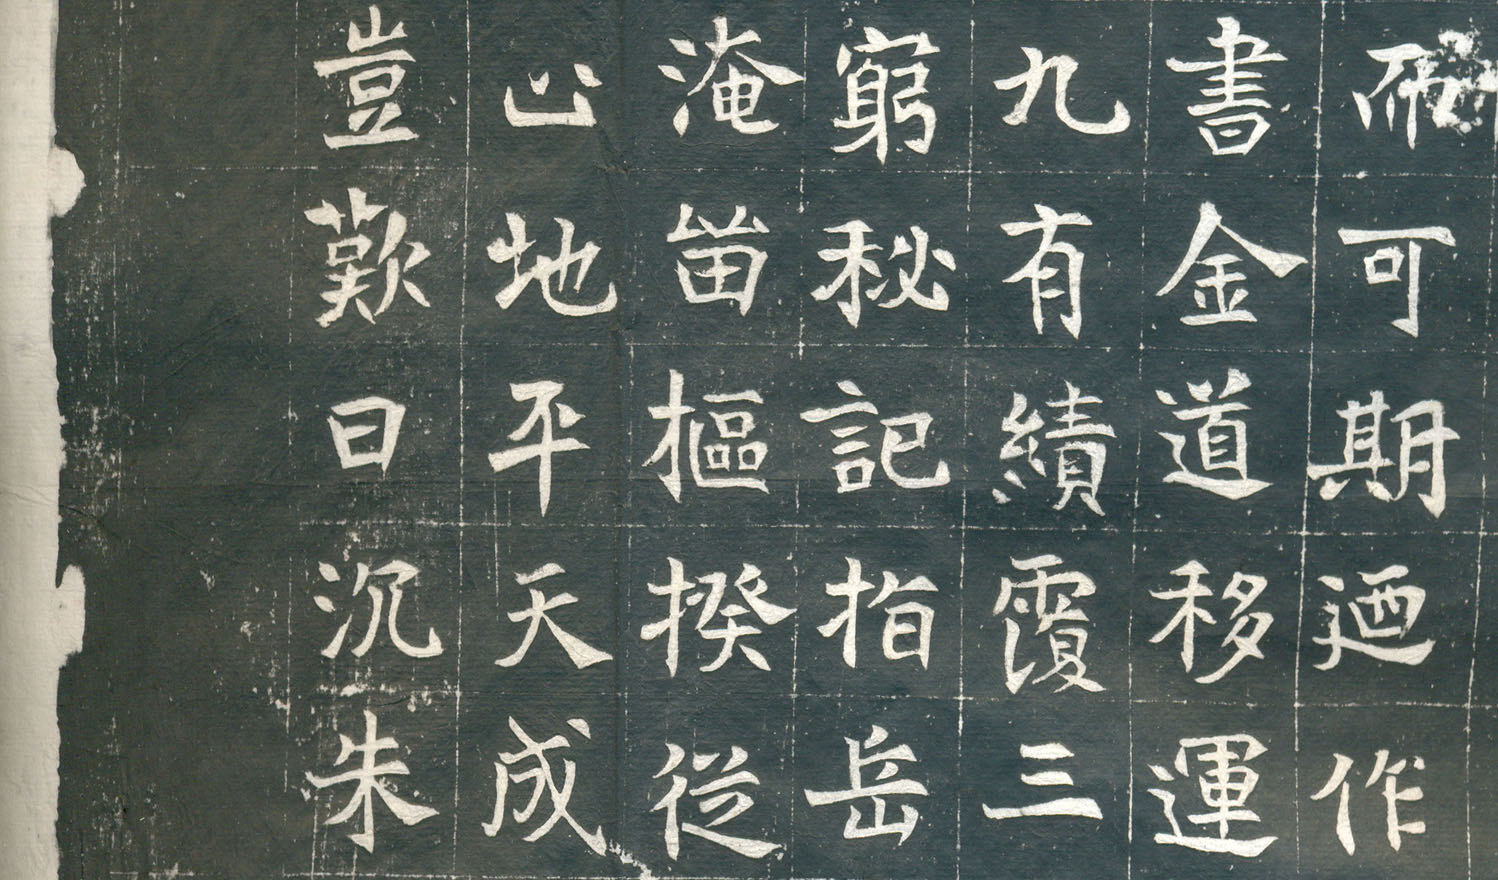 可期迺作
書金道移運
九有績覆三
窮秘記指岳
淹畄樞揆從
地平天成
豈歎曰沉朱